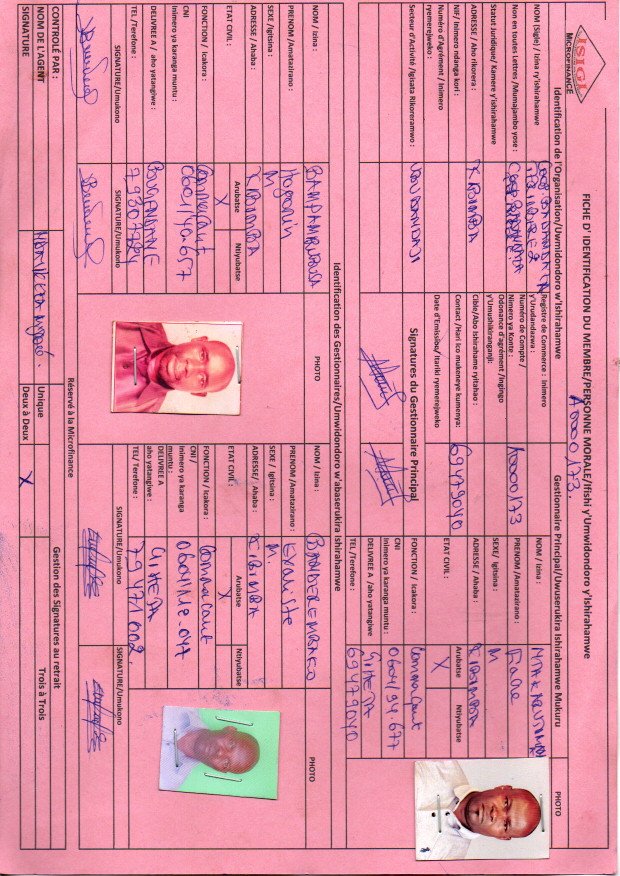 ISIGI
MICROFINANCE
FICHE D' IDENTIFICATION DU MEMBRE/PERSONNE MORALE/Ifishi y'Umwidondoro y'Ishirahamwe
A0000173.
Identification de l'Organisation/Uwmidondoro w'Ishirahamwe
NOM (Sigle) / Izina ry'ishirahamwe
Non en toutes Lettres /Mumajambo yose :
Statut Juridique/ Kamere y'ishirahamwe
ADRESSE / Aho rikorera : KIBIMBA
NIF/ Inimero ndanga kori :
Numéro d'Agrément / Inimero ryemerejweko :
Secteur d'Activité /Igisata Rikoreramwo :
Registre de Commerce : Inimero y'Urudandazwa :
Numéro de Compte / Nimero ya Konte : A0000173
Odonance d'agrément /Ingingo y'Umushikiranganji:
Cible/Abo ishirahame ryitahao :
Contact /Hari ico mukeneye kumenya: 69479040
Date d'Emissibo/ Itariki ryemerejweko
Signatures du Gestionnaire Principal
Gestionnaire Principal/Uwuserukira Ishirahamwe Mukuru
PHOTO
NOM / Izina :
PRENOM /Amatazirano :
SEXE/ Igitsina : M
ADRESSE / Ahaba : KIBIMBA
ETAT CIVIL : Arubatse Ntiyubatse
X
FONCTION / Icakora : Commerçant
CNI Inimero ya karanga muntu : 0604/94 677
DELIVREE A /aho yatangiwe GIHETA
TEL /Terefone : 69479040
Identification des Gestionnaires/Umwidondoro w'abaserukira ishirahamwe
PHOTO
NOM / Izina :
PRENOM /Amatazirano :
SEXE /Igitsina : M
ADRESSE / Ahaba : KIBIMBA
ETAT CIVIL : Arubatse Ntiyubatse
X
FONCTION / Icakora : Commerçant
Inimero ya karanga muntu :
DELIVREE A / aho yatangiwe :
TEL /Terefone :
SIGNATURE/Umukono SIGNATURE/Umukono
PHOTO
NOM / Izina :
PRENOM /Amatazirano : Evariste
SEXE / Igitsina : M.
ADRESSE/ Ahaba : KIBIMBA
ETAT CIVIL : Arubatse Ntiyubatse
X
FONCTION / Icakora : Commerçant
CNI / Inimero ya karanga muntu :
DELIVREE A aho yatangiwe : GIHETA
TEL/ Terefone : 79471002
SIGNATURE/Umukono SIGNATURE/Umukono
Réservé à la Microfinance
CONTROLÉ PAR :
NOM DE L'AGENT
SIGNATURE
Gestion des Signatures au retrait
Unique
Deux à Deux X
Trois à Trois